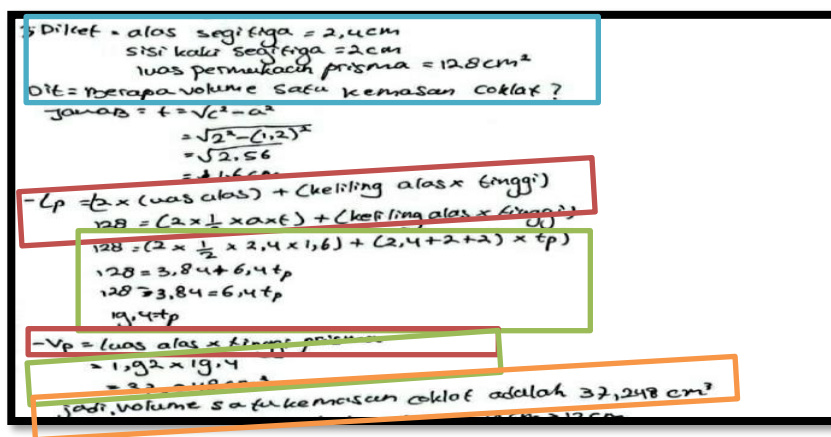 3. Diket = alas segitiga = 2,4cm
sisi kaki segitiga = 2cm
luas permukaan prisma = 128cm²
Dit = Berapa volume satu kemasan coklat ?
Jawab = t = √c² - a²
= √2² - (1,2)²
= √2.56
= 1,6 cm
- Lp = (2 x luas alas) + (keliling alas x tinggi)
128 = (2 x 1/2 x a x t) + (keliling alas x tinggi)
128 = (2 x 1/2 x 2,4 x 1,6) + (2,4+2+2) x tp)
128 = 3,84 + 6,4 tp
128 - 3,84 = 6,4 tp
19,4 = tp
- Vp = luas alas x tinggi prisma
= 1,92 x 19,4
jadi, volume satu kemasan coklat adalah 37,248 cm³